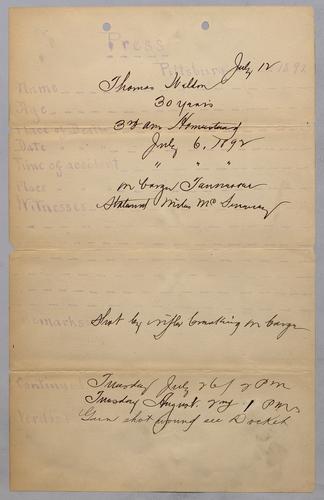 Press
Pittsburg July 12 1892
Name Thomas Weldon
Age 30 years
Place of Death 3rd ave Homestead
Date " " July 6, 1892
Time of accident " " "
Place " on barge
Witnesses Miles Mc
Remarks Shot by rifle breaking on barge
Continued Tuesday July 26/ 2 PM
Tuesday August 2nd 1 PM
Verdict Gun shot wound see Docket